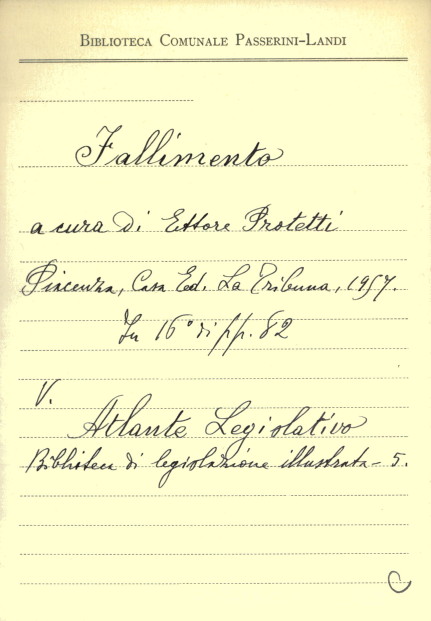 BIBLIOTECA COMUNALE PASSERINI-LANDI
Fallimento
a cura di Ettore Protetti
Piacenza, Casa Ed. La Tribuna, 1957.
In 16° di pp. 82
V.
Atlante Legislativo
Biblioteca di legislazione illustrata - 5.
C